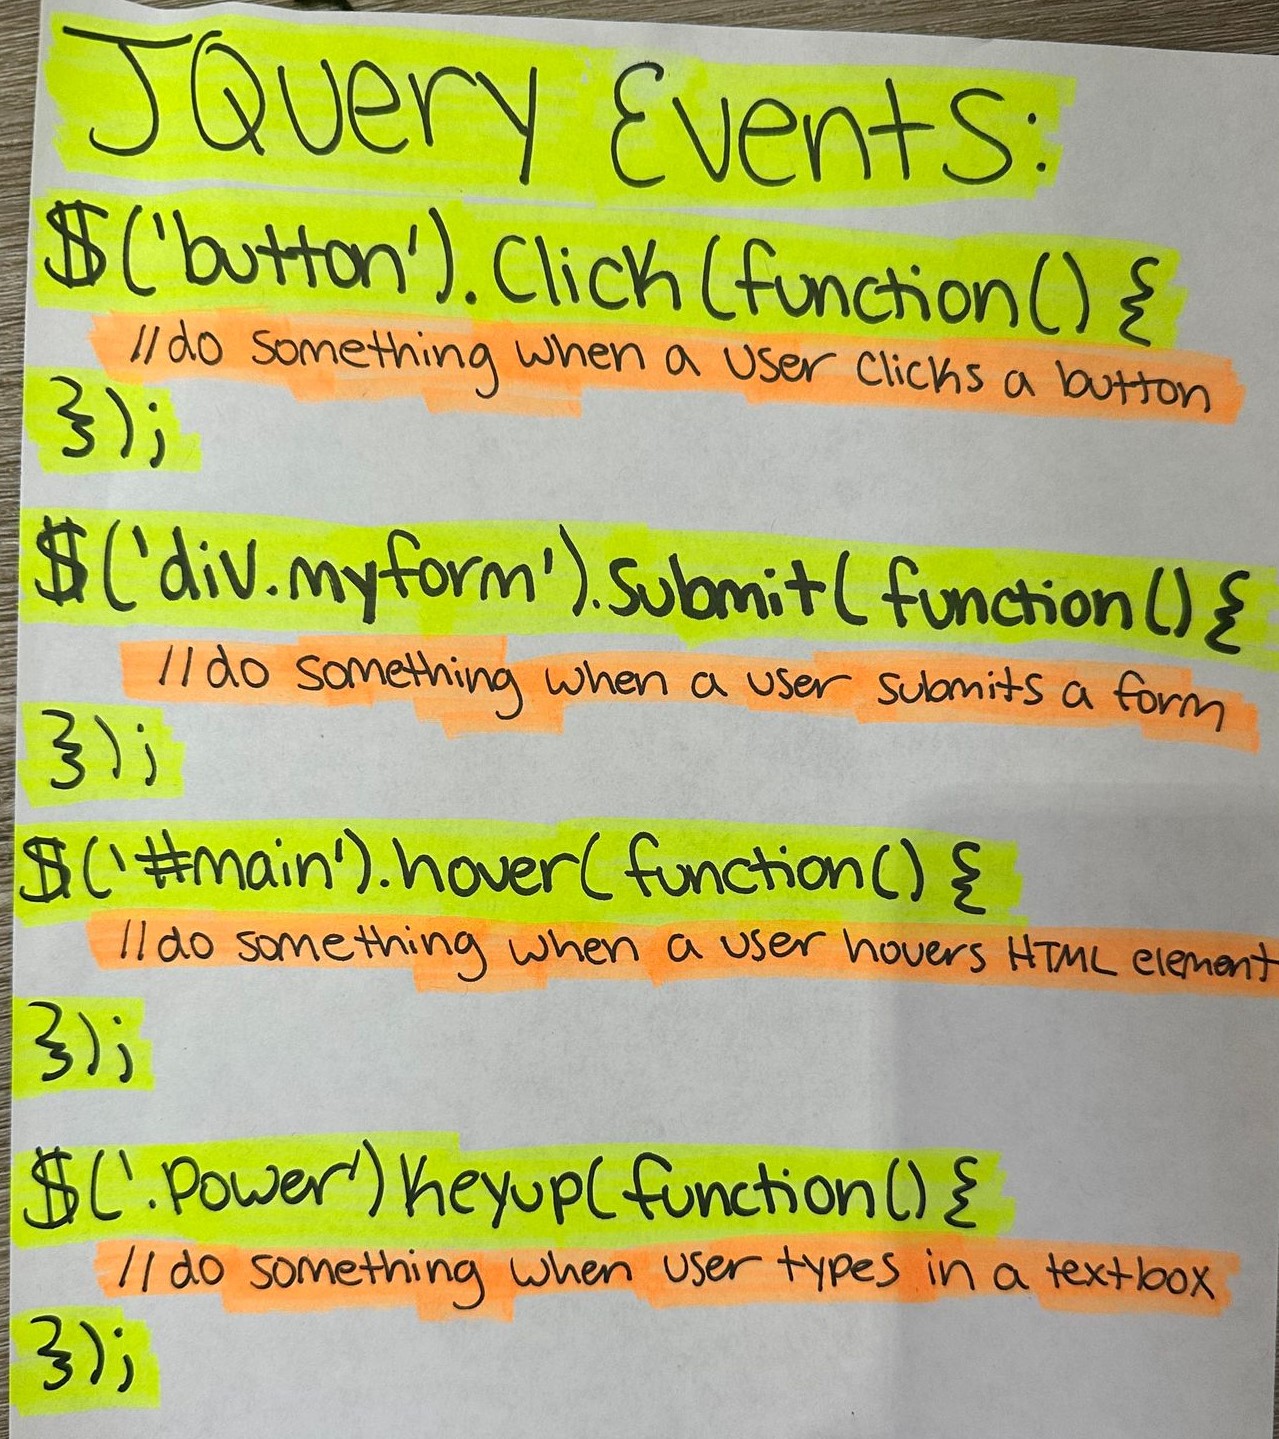 JQuery Events:
$('button').click(function() {
//do something when a user clicks a button
});
$('div.myform').submit(function() {
//do something when a user submits a form
});
$('#main').hover(function() {
//do something when a user hovers HTML element
});
$('.power')keyup(function() {
//do something when user types in a textbox
});